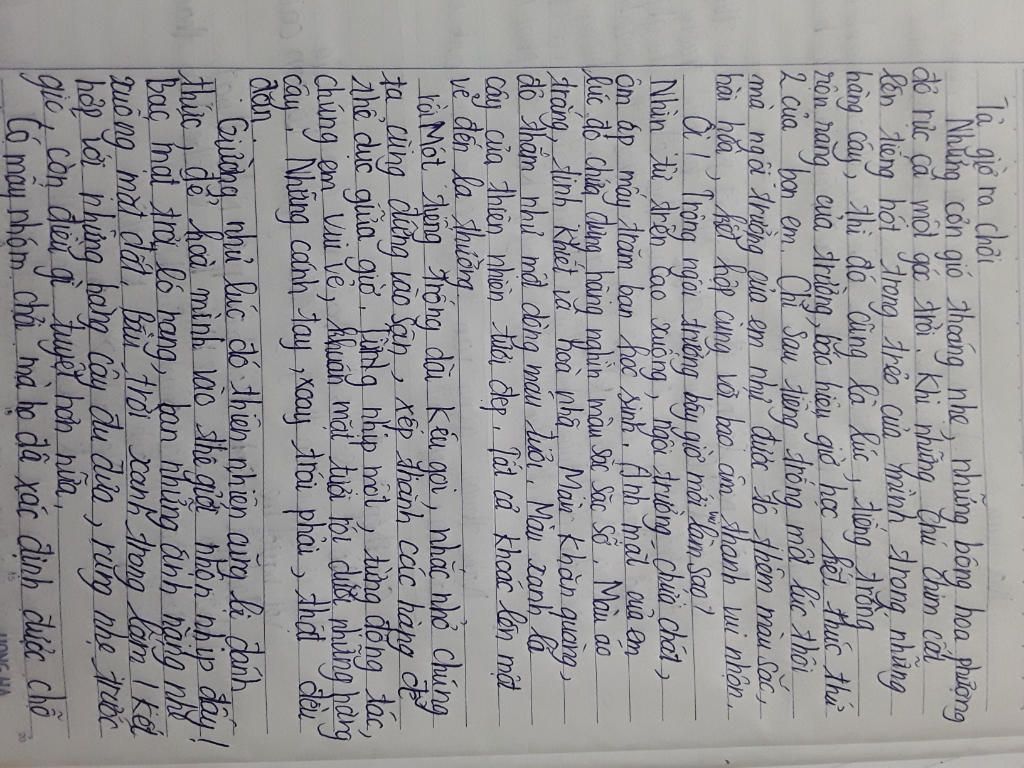 Tả giờ ra chơi
Những cơn gió thoáng nhẹ, những bông hoa phượng
đỏ rực cả một góc trời. Khi những chú chim cất
lên tiếng hát trong trẻo của mình trong những
hàng cây, thì đó cũng là lúc, tiếng trống
rộn ràng của trường báo hiệu giờ học kết thúc thứ
2 của bọn em. Chỉ sau tiếng trống một lúc thôi
mà ngôi trường của em như được tô thêm màu sắc,
hài hòa, kết hợp cùng với bao âm thanh vui nhộn.
Ôi! Trông ngôi trường bây giờ mới vui làm sao?
Nhìn từ trên cao xuống, ngôi trường chứa chất,
ôm ấp mấy trăm bạn học sinh. Ánh mắt của em
lúc đó chứa đựng hàng nghìn màu sắc sặc sỡ. Màu áo
trắng, tinh khiết là hoà nhã. Màu khăn quàng,
đỏ thắm như một dòng máu tươi. Màu xanh lá
cây của thiên nhiên tươi đẹp. Tất cả khoác lên một
vẻ đến lạ thường
Một tiếng trống dài kêu gọi, nhắc nhở chúng
ta cùng đứng vào sân, xếp thành các hàng để
thể dục giữa giờ. Từng nhịp một, từng động tác,
chúng em vui vẻ, khuôn mặt tươi rói dưới những hàng
cây. Những cánh tay, xoay trái phải, thật đều
đặn.
Giường như lúc đó thiên nhiên cũng bị đánh
thức, để hoà mình vào thế giới nhộn nhịp đấy!
Bác mặt trời ló rạng, ban những ánh nắng nhẹ
xuống mặt đất. Bầu trời xanh trong lắm! Kết
hợp với những hàng cây đu đưa, rung nhẹ trước
gió, còn điều gì tuyệt hơn nữa.
Có mấy nhóm chơi mà họ đã xác định được chỗ